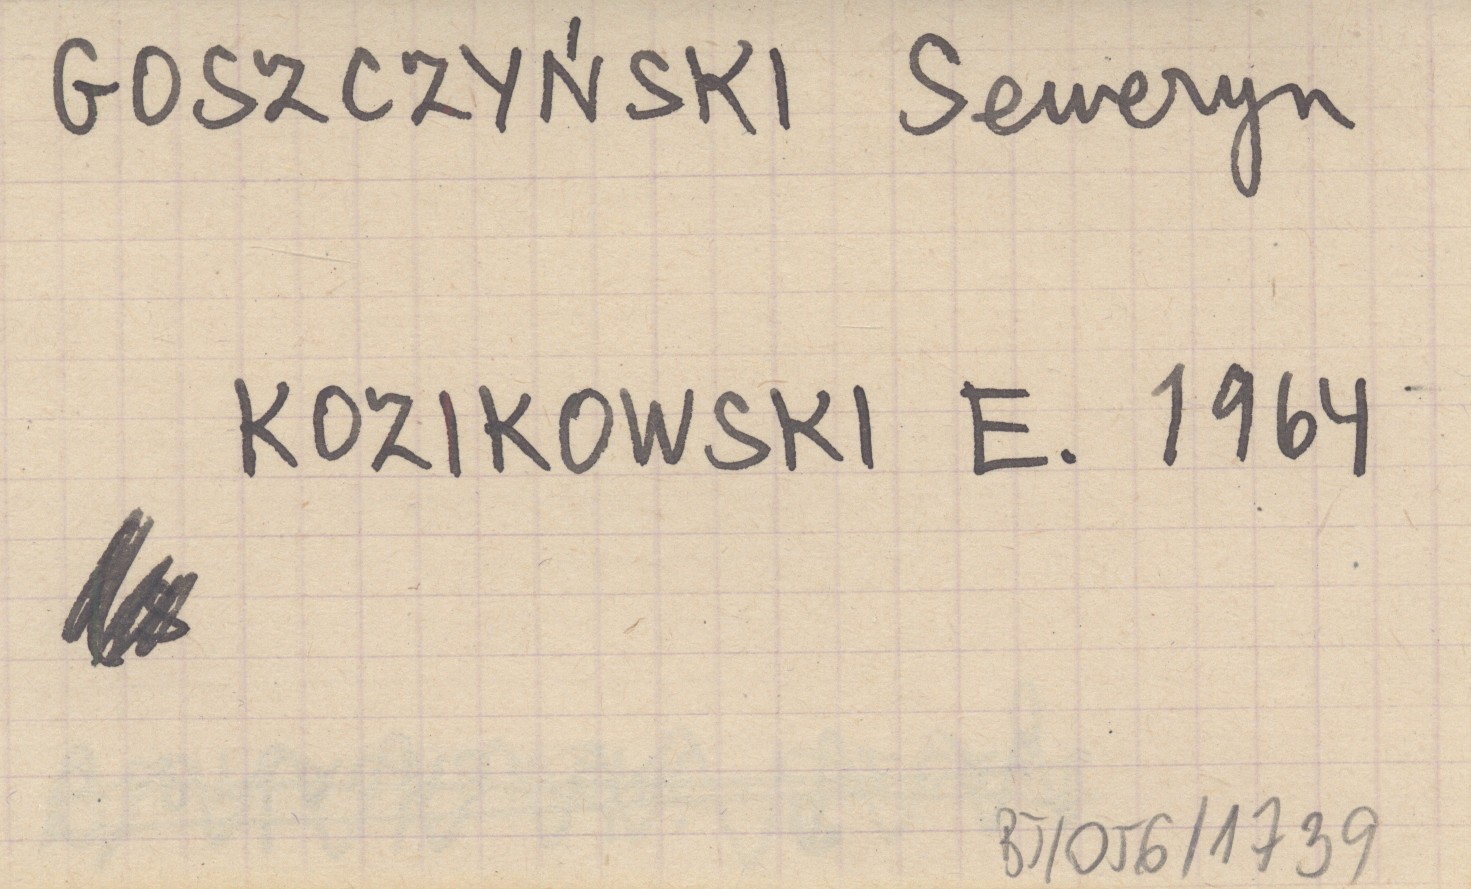 GOSZCZYŃSKI Seweryn
KOZIKOWSKI E. 1964
BJ/OJ6/1739